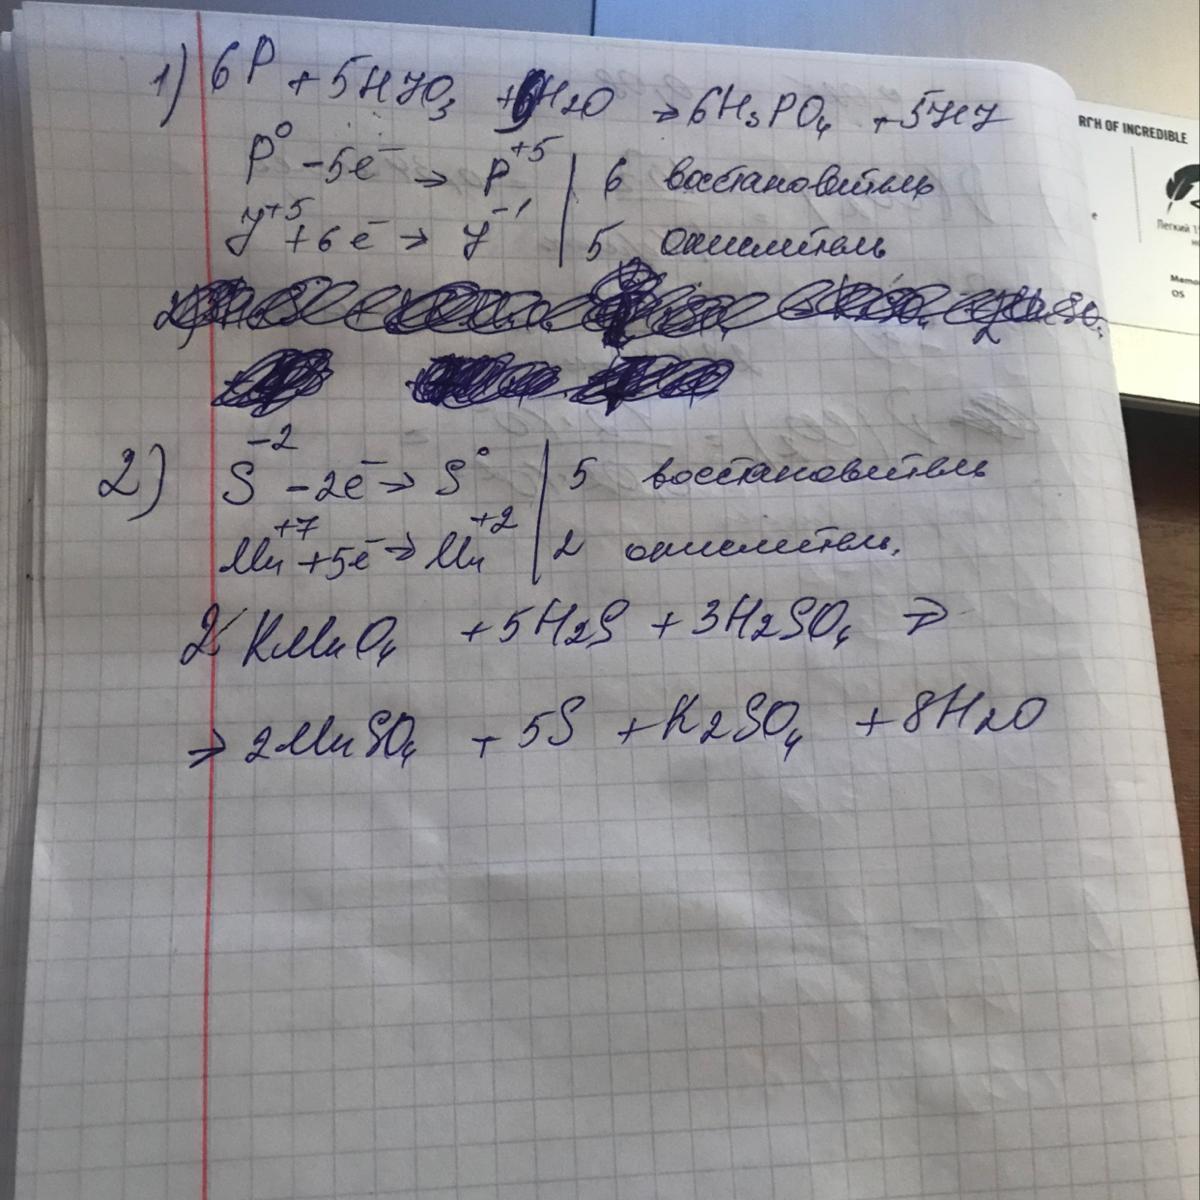 1) 6P + 5HJO₃ + H₂O → 6H₃PO₄ + 5HJ
P⁰ - 5e⁻ → P⁺⁵ | 6 восстановитель
J⁺⁵ + 6e⁻ → J⁻¹ | 5 окислитель
2) S⁻² - 2e⁻ → S⁰ | 5 восстановитель
Mn⁺⁷ + 5e⁻ → Mn⁺² | 2 окислитель.
2KMnO₄ + 5H₂S + 3H₂SO₄ →
→ 2MnSO₄ + 5S + K₂SO₄ + 8H₂O
RCH OF INCREDIBLE
Легкий
OS